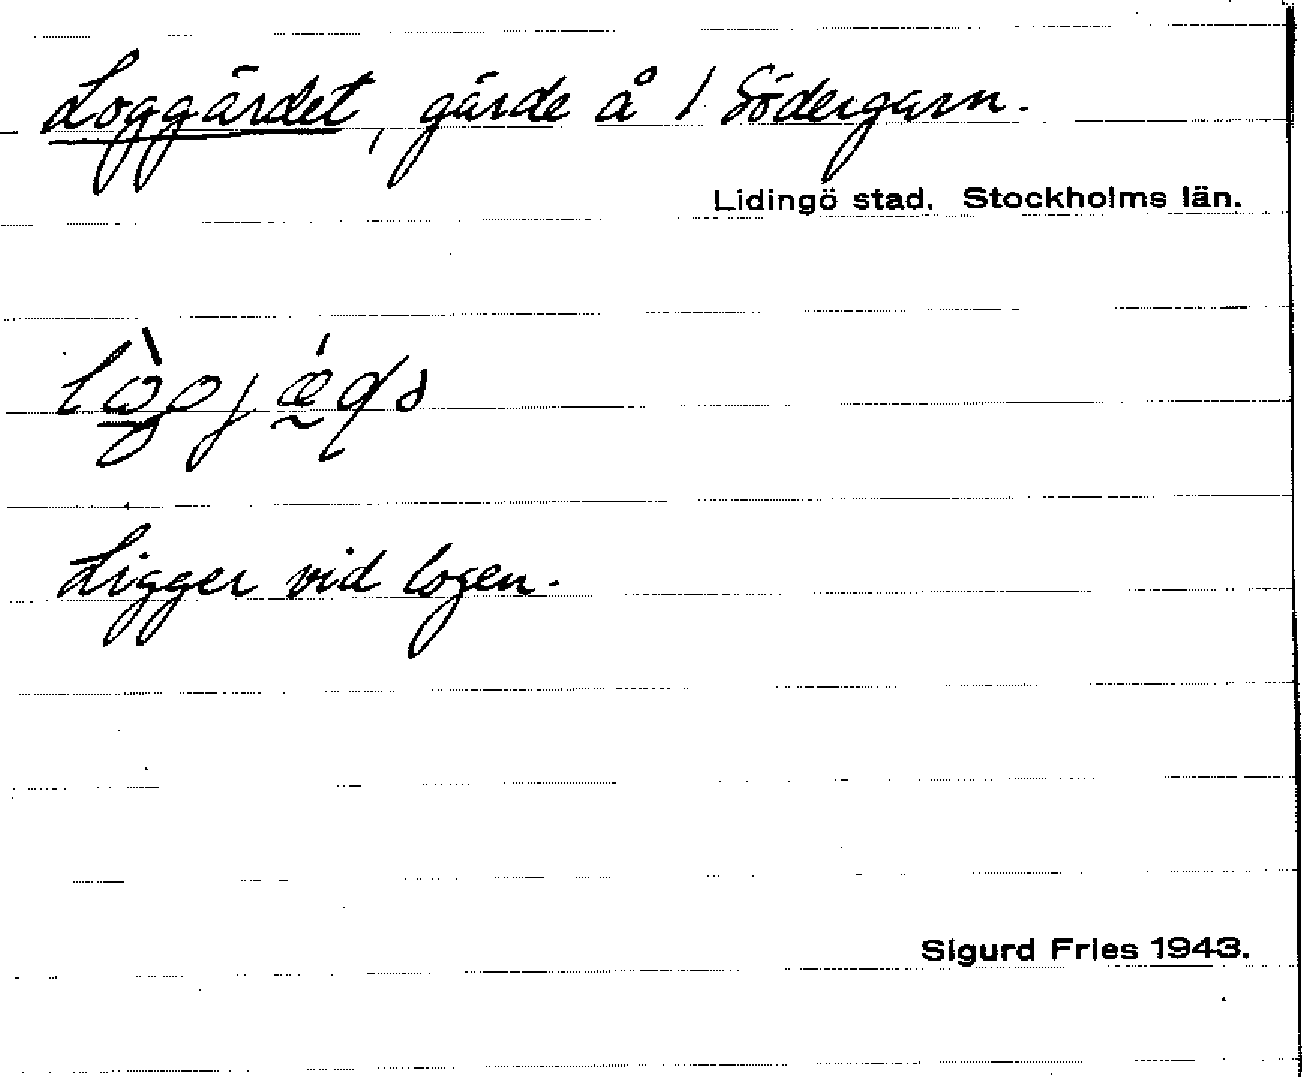 Loggärdet, gärde å 1 Södergarn.
Lidingö stad. Stockholms län.
Ligger vid logen.
Sigurd Fries 1943.